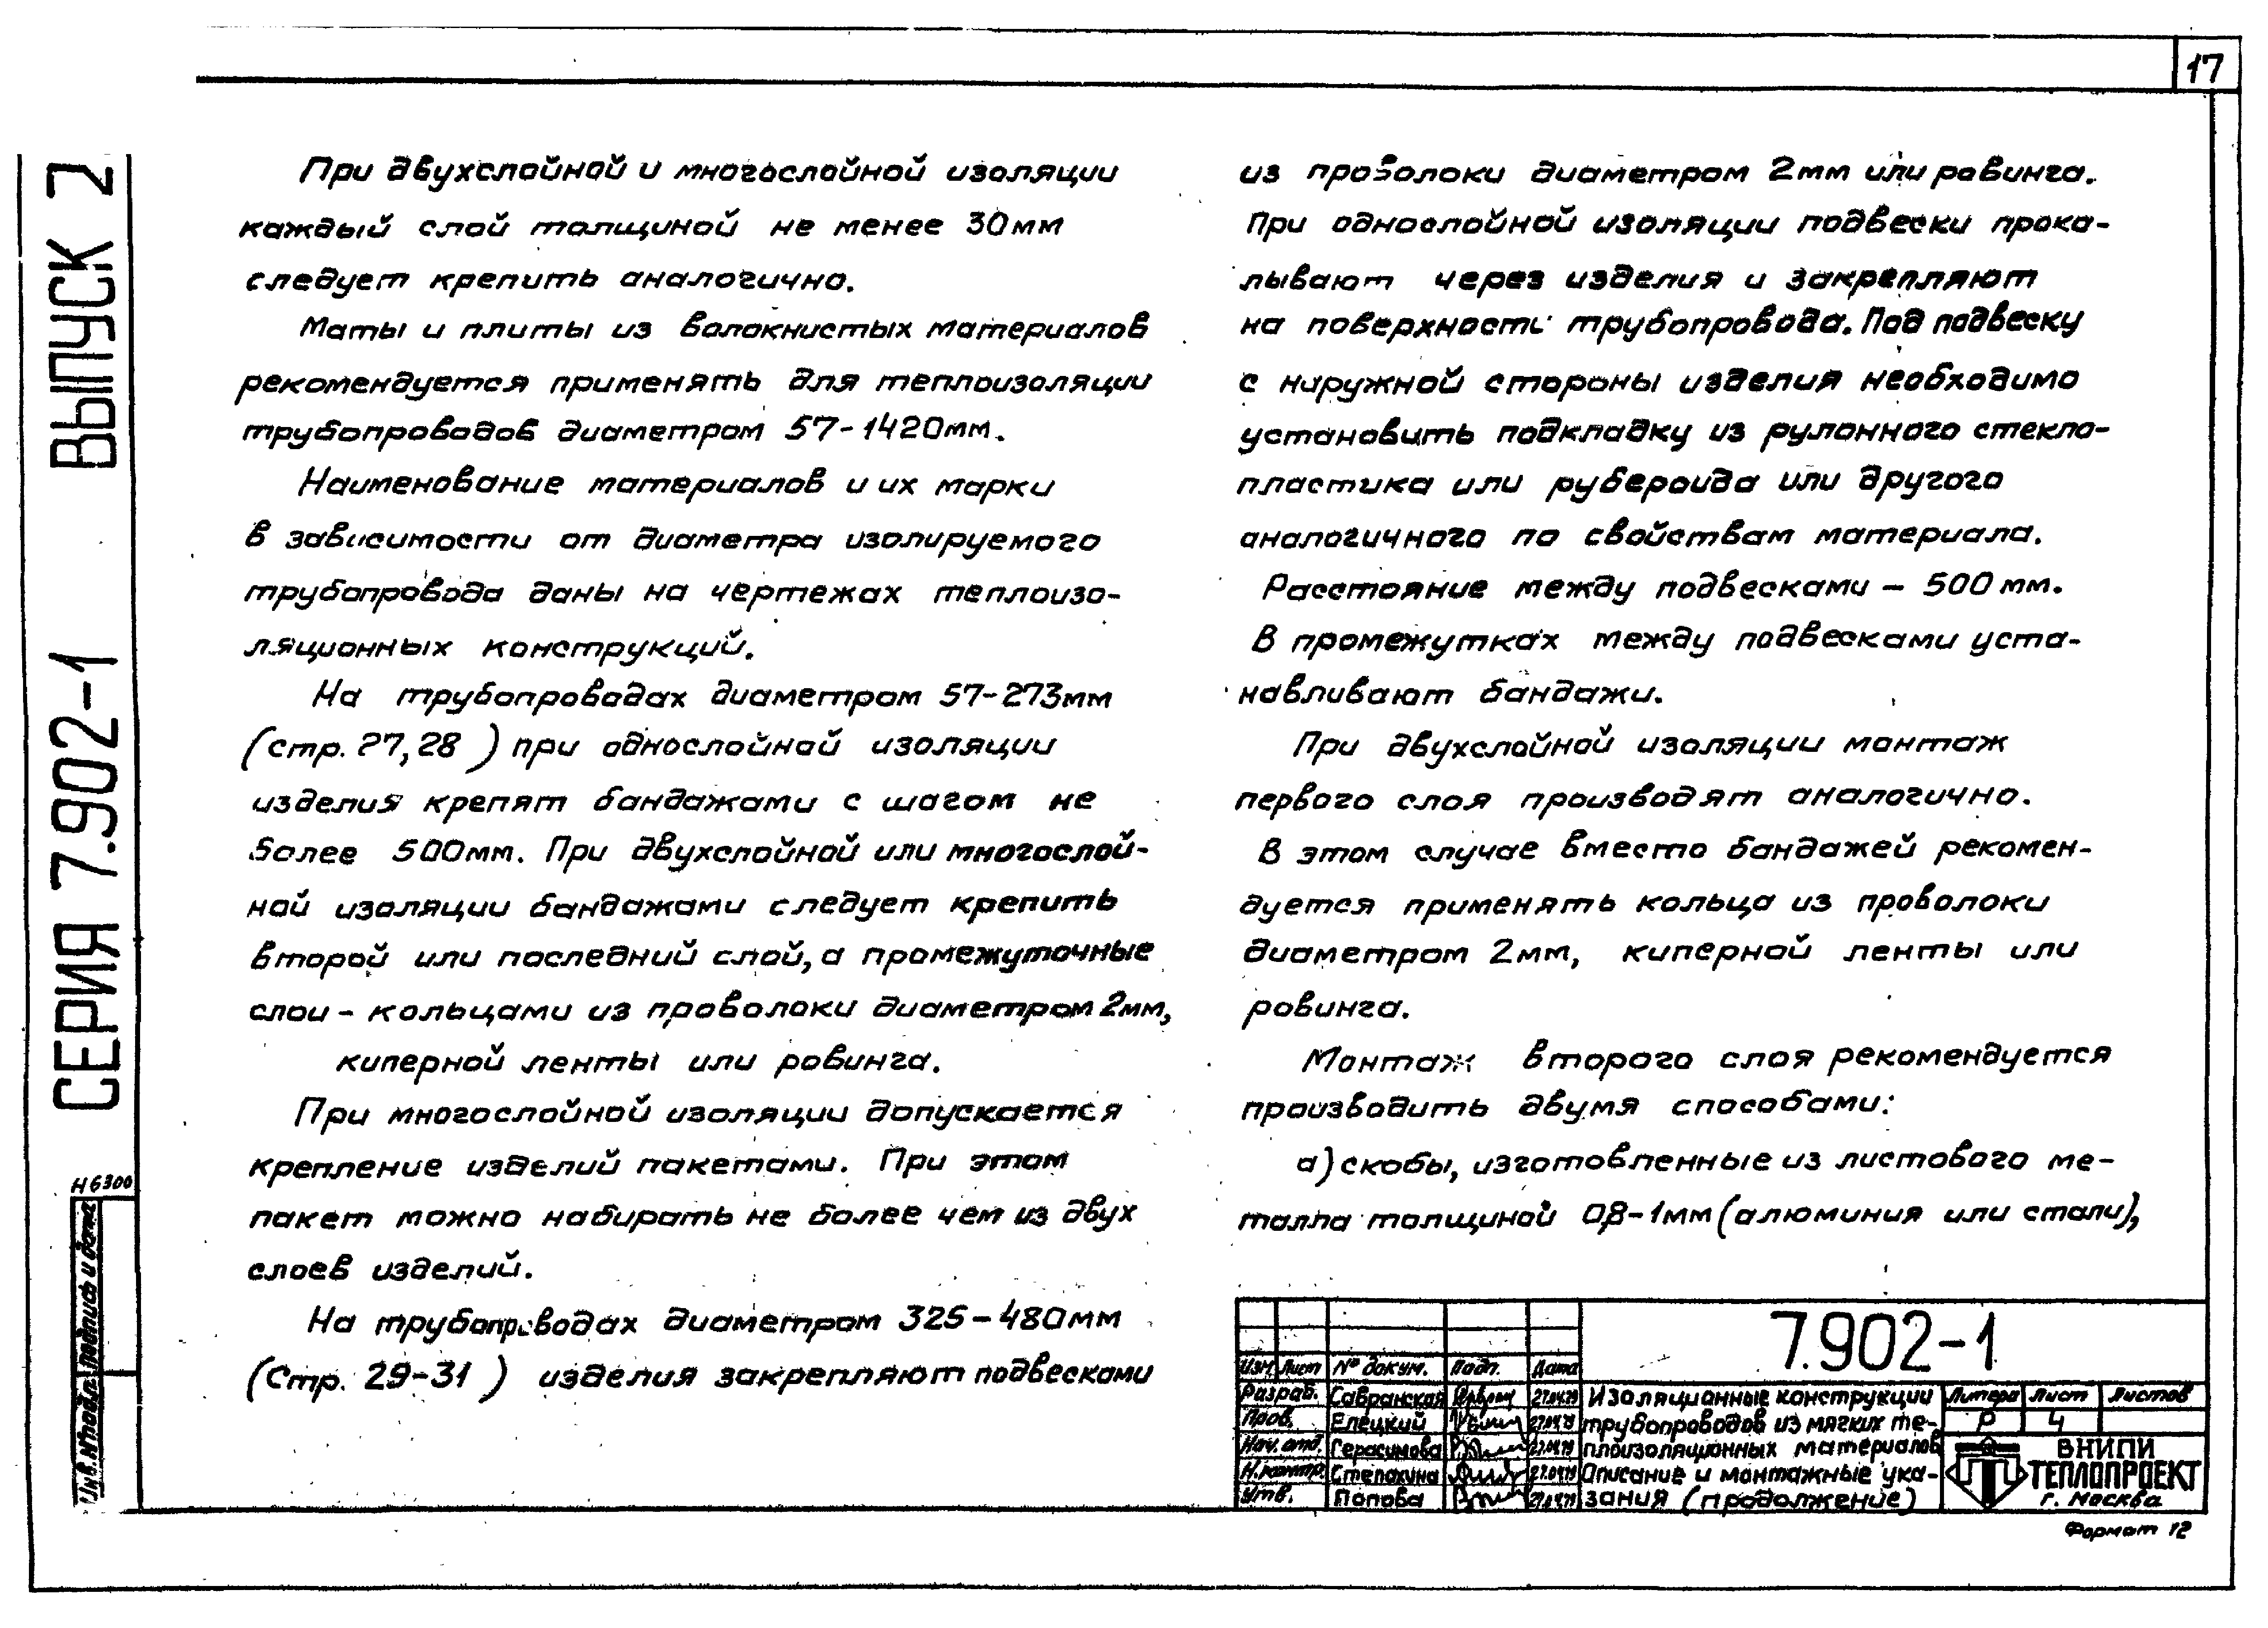 17
СЕРИЯ 7.902-1 ВЫПУСК 2
При двухслойной и многослойной изоляции
каждый слой толщиной не менее 30мм
следует крепить аналогично.
Маты и плиты из волокнистых материалов
рекомендуется применять для теплоизоляции
трубопроводов диаметром 57-1420мм.
Наименование материалов и их марки
в зависимости от диаметра изолируемого
трубопровода даны на чертежах теплоизо-
ляционных конструкций.
На трубопроводах диаметром 57-273мм
(стр. 27,28 ) при однослойной изоляции
изделия крепят бандажами с шагом не
более 500мм. При двухслойной или многослой-
ной изоляции бандажами следует крепить
второй или последний слой, а промежуточные
слои - кольцами из проволоки диаметром 2мм,
киперной ленты или ровинга.
При многослойной изоляции допускается
крепление изделий пакетами. При этом
пакет можно набирать не более чем из двух
слоев изделий.
На трубопроводах диаметром 325-480мм
(Стр. 29-31 ) изделия закрепляют подвесками
из проволоки диаметром 2мм или ровинга.
При однослойной изоляции подвески прока-
лывают через изделия и закрепляют
на поверхности трубопровода. Под подвеску
с наружной стороны изделия необходимо
установить подкладку из рулонного стекло-
пластика или рубероида или другого
аналогичного по свойствам материала.
Расстояние между подвесками - 500 мм.
В промежутках между подвесками уста-
навливают бандажи.
При двухслойной изоляции монтаж
первого слоя производят аналогично.
В этом случае вместо бандажей рекомен-
дуется применять кольца из проволоки
диаметром 2мм, киперной ленты или
ровинга.
Монтаж второго слоя рекомендуется
производить двумя способами:
а) скобы, изготовленные из листового ме-
талла толщиной 0,8-1мм (алюминия или стали),
Н6300
Инв.№подл. подпись и дата
7.902-1
Изм. Лист № докум. Подп. Дата
Разраб. Савранская 27.04.79
Пров. Елецкий 27.04.79
Нач. отд. Герасимова 27.04.79
Н. контр. Степахина 27.04.79
Утв. Попова 27.04.79
Изоляционные конструкции
трубопроводов из мягких те-
плоизоляционных материалов
Описание и монтажные ука-
зания (продолжение)
Литера Лист Листов
Р 4
ВНИПИ
ТЕПЛОПРОЕКТ
г. Москва
Формат 12